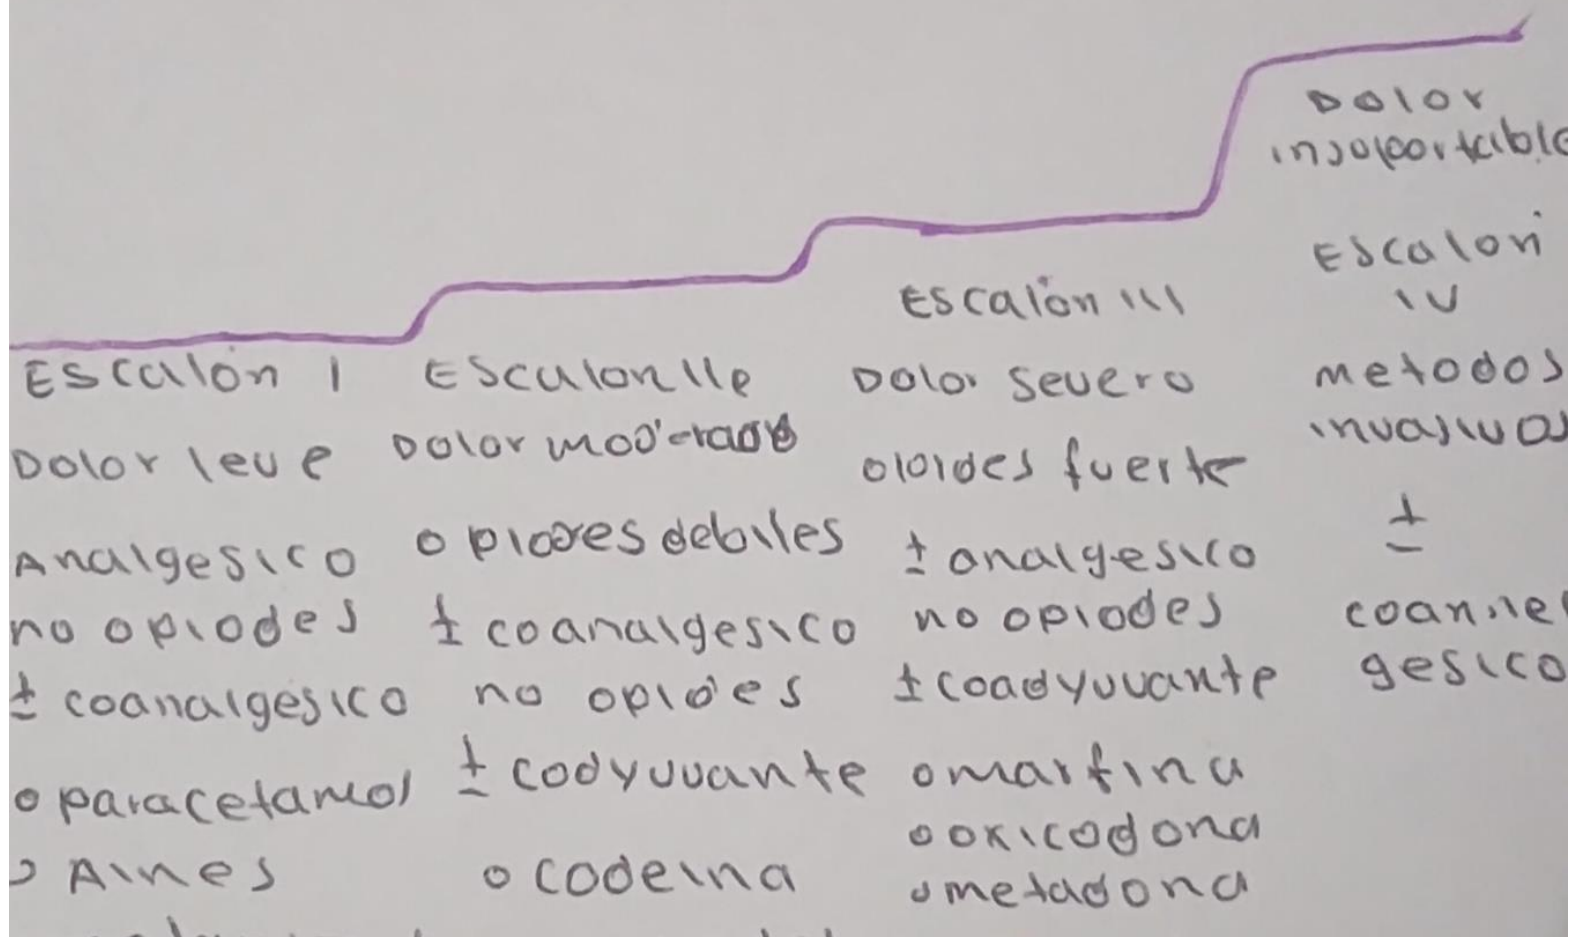 Escalón I
Dolor leve
Analgesico
no opiodes
± coanalgesico
o paracetamol
o Aines
Escalon IIe
Dolor moderado
opioides debiles
± coanalgesico
no opioes
± codyuvante
o codeina
Escalón III
Dolor severo
oioides fuerte
± analgesico
no opiodes
± coadyuvante
o marfina
o oxicodona
o metadona
Dolor
insoportable
Escalon
IV
metodos
invasivos
±
gesico